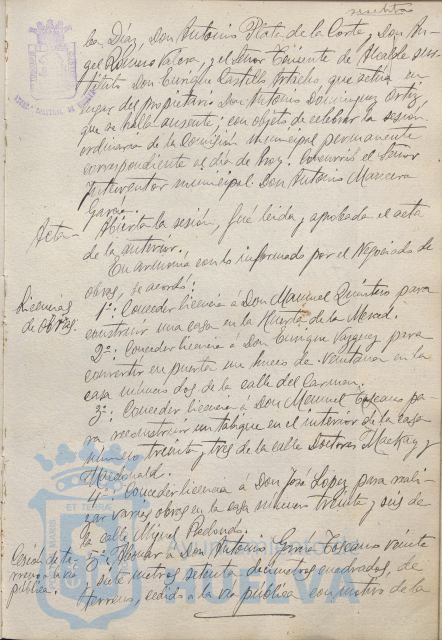 bo Díaz, Don Antonio Plata de la Corte, Don An-
gel Moreno Valera, y el Señor Teniente de Alcalde sus-
tituto Don Enrique Castillo, que actua en
lugar del propietario Don Antonio Dominguez Ortiz,
que se halla ausente; con objeto de celebrar la sesion
ordinaria de la Comisión municipal permanente
correspondiente al dia de hoy. Concurrió el Señor
Interventor municipal Don Antonio
García.
Acta- Abierta la sesión, fué leida y aprobada el acta
de la anterior.
En armonia con lo informado por el Negociado de
obras, se acordó:
Licencias
de obras.
1º: Conceder licencia á Don Manuel Quintero para
construir una casa en la Huerta de la Merced.
2º: Conceder licencia á Don Enrique Vazquez para
convertir en puerta un hueco de ventana en la
casa número dos de la calle del Carmen.
3º: Conceder licencia á Don Manuel Toscano pa-
ra reconstruir un tabique en el interior de la casa
número treinta y tres de la calle Doctores Mackay y
Macdonald.
4º: Conceder licencia á Don José Lopez para reali-
zar varias obras en la casa número treinta y seis de
la calle Miguel Redondo.
Cesión de te-
rreno a la vía
pública.
5º: Abonar á Don Antonio Toscano veinte
y siete metros setenta decimetros cuadrados, de
terreno, cedido a la vía pública con motivo de la
Ayuntamiento de
HUELVA